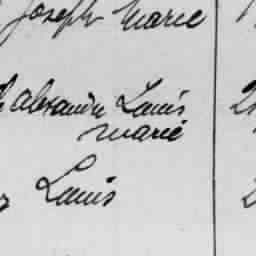 Joseph Marie
Alexandre Louis
Marie
Louis